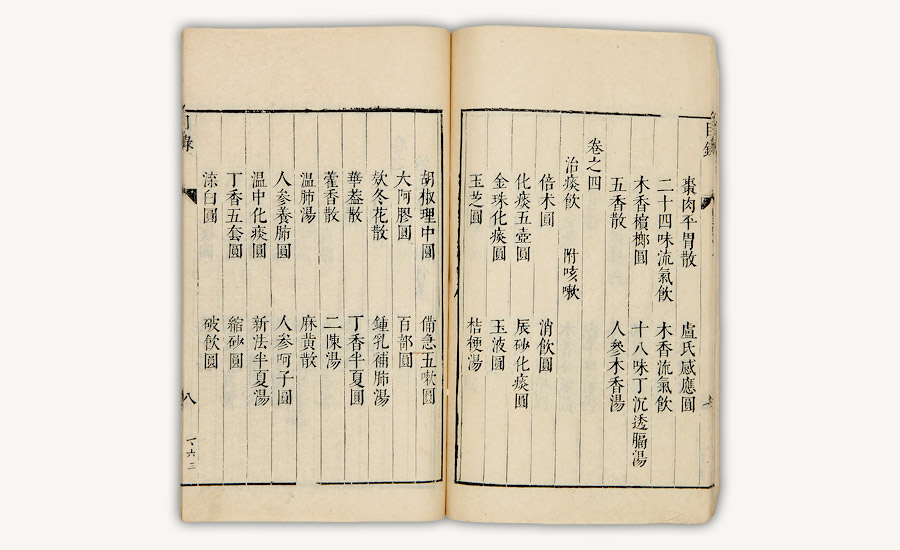 棗肉平胃散 盧氏感應圓
二十四味流氣飲 木香流氣飲
木香檳榔圓 十八味丁沉透膈湯
五香散 人參木香湯
卷之四
治痰飲 附咳嗽
倍术圓 消飲圓
化痰五壺圓 辰砂化痰圓
金珠化痰圓 玉液圓
玉芝圓 桔梗湯
胡椒理中圓 備急五嗽圓
大阿膠圓 百部圓
欵冬花散 鍾乳補肺湯
華葢散 丁香半夏圓
藿香散 二陳湯
温肺湯 麻黄散
人參養肺圓 人參呵子圓
温中化痰圓 新法半夏湯
丁香五套圓 縮砂圓
滚白圓 破飲圓
目錄
八